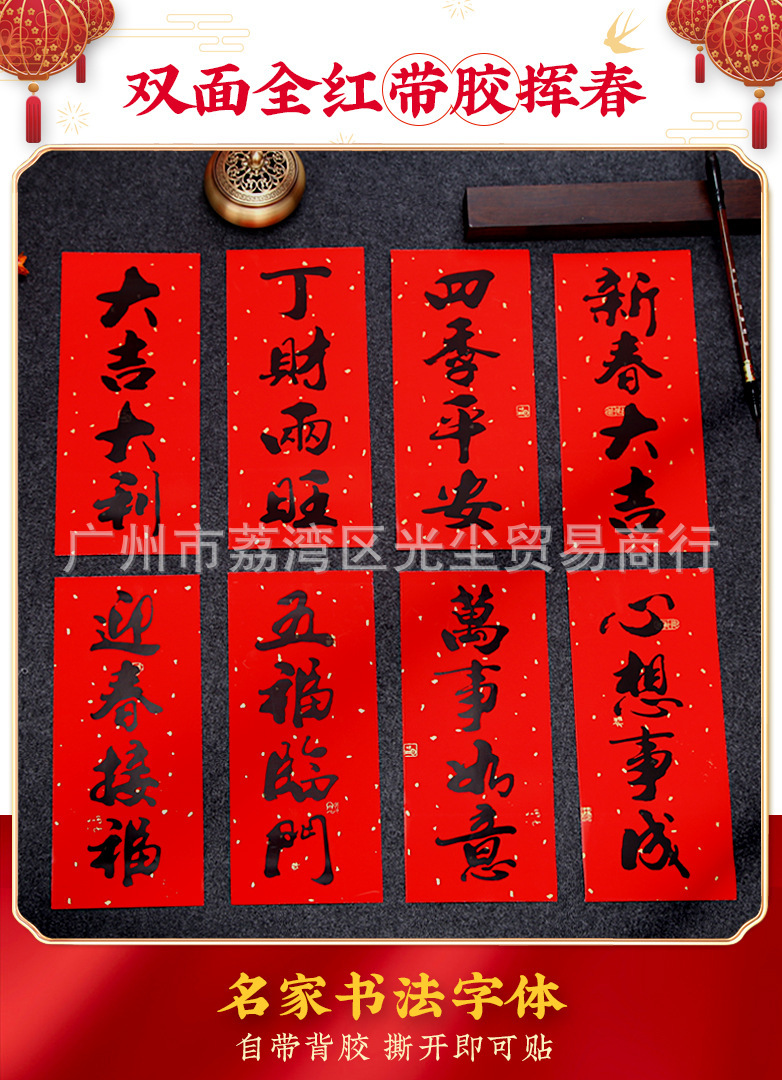 双面全红带胶挥春
大吉大利
丁財兩旺
四季平安
新春大吉
广州市荔湾区光尘贸易商行
迎春接福
五福臨門
萬事如意
心想事成
名家书法字体
自带背胶 撕开即可贴